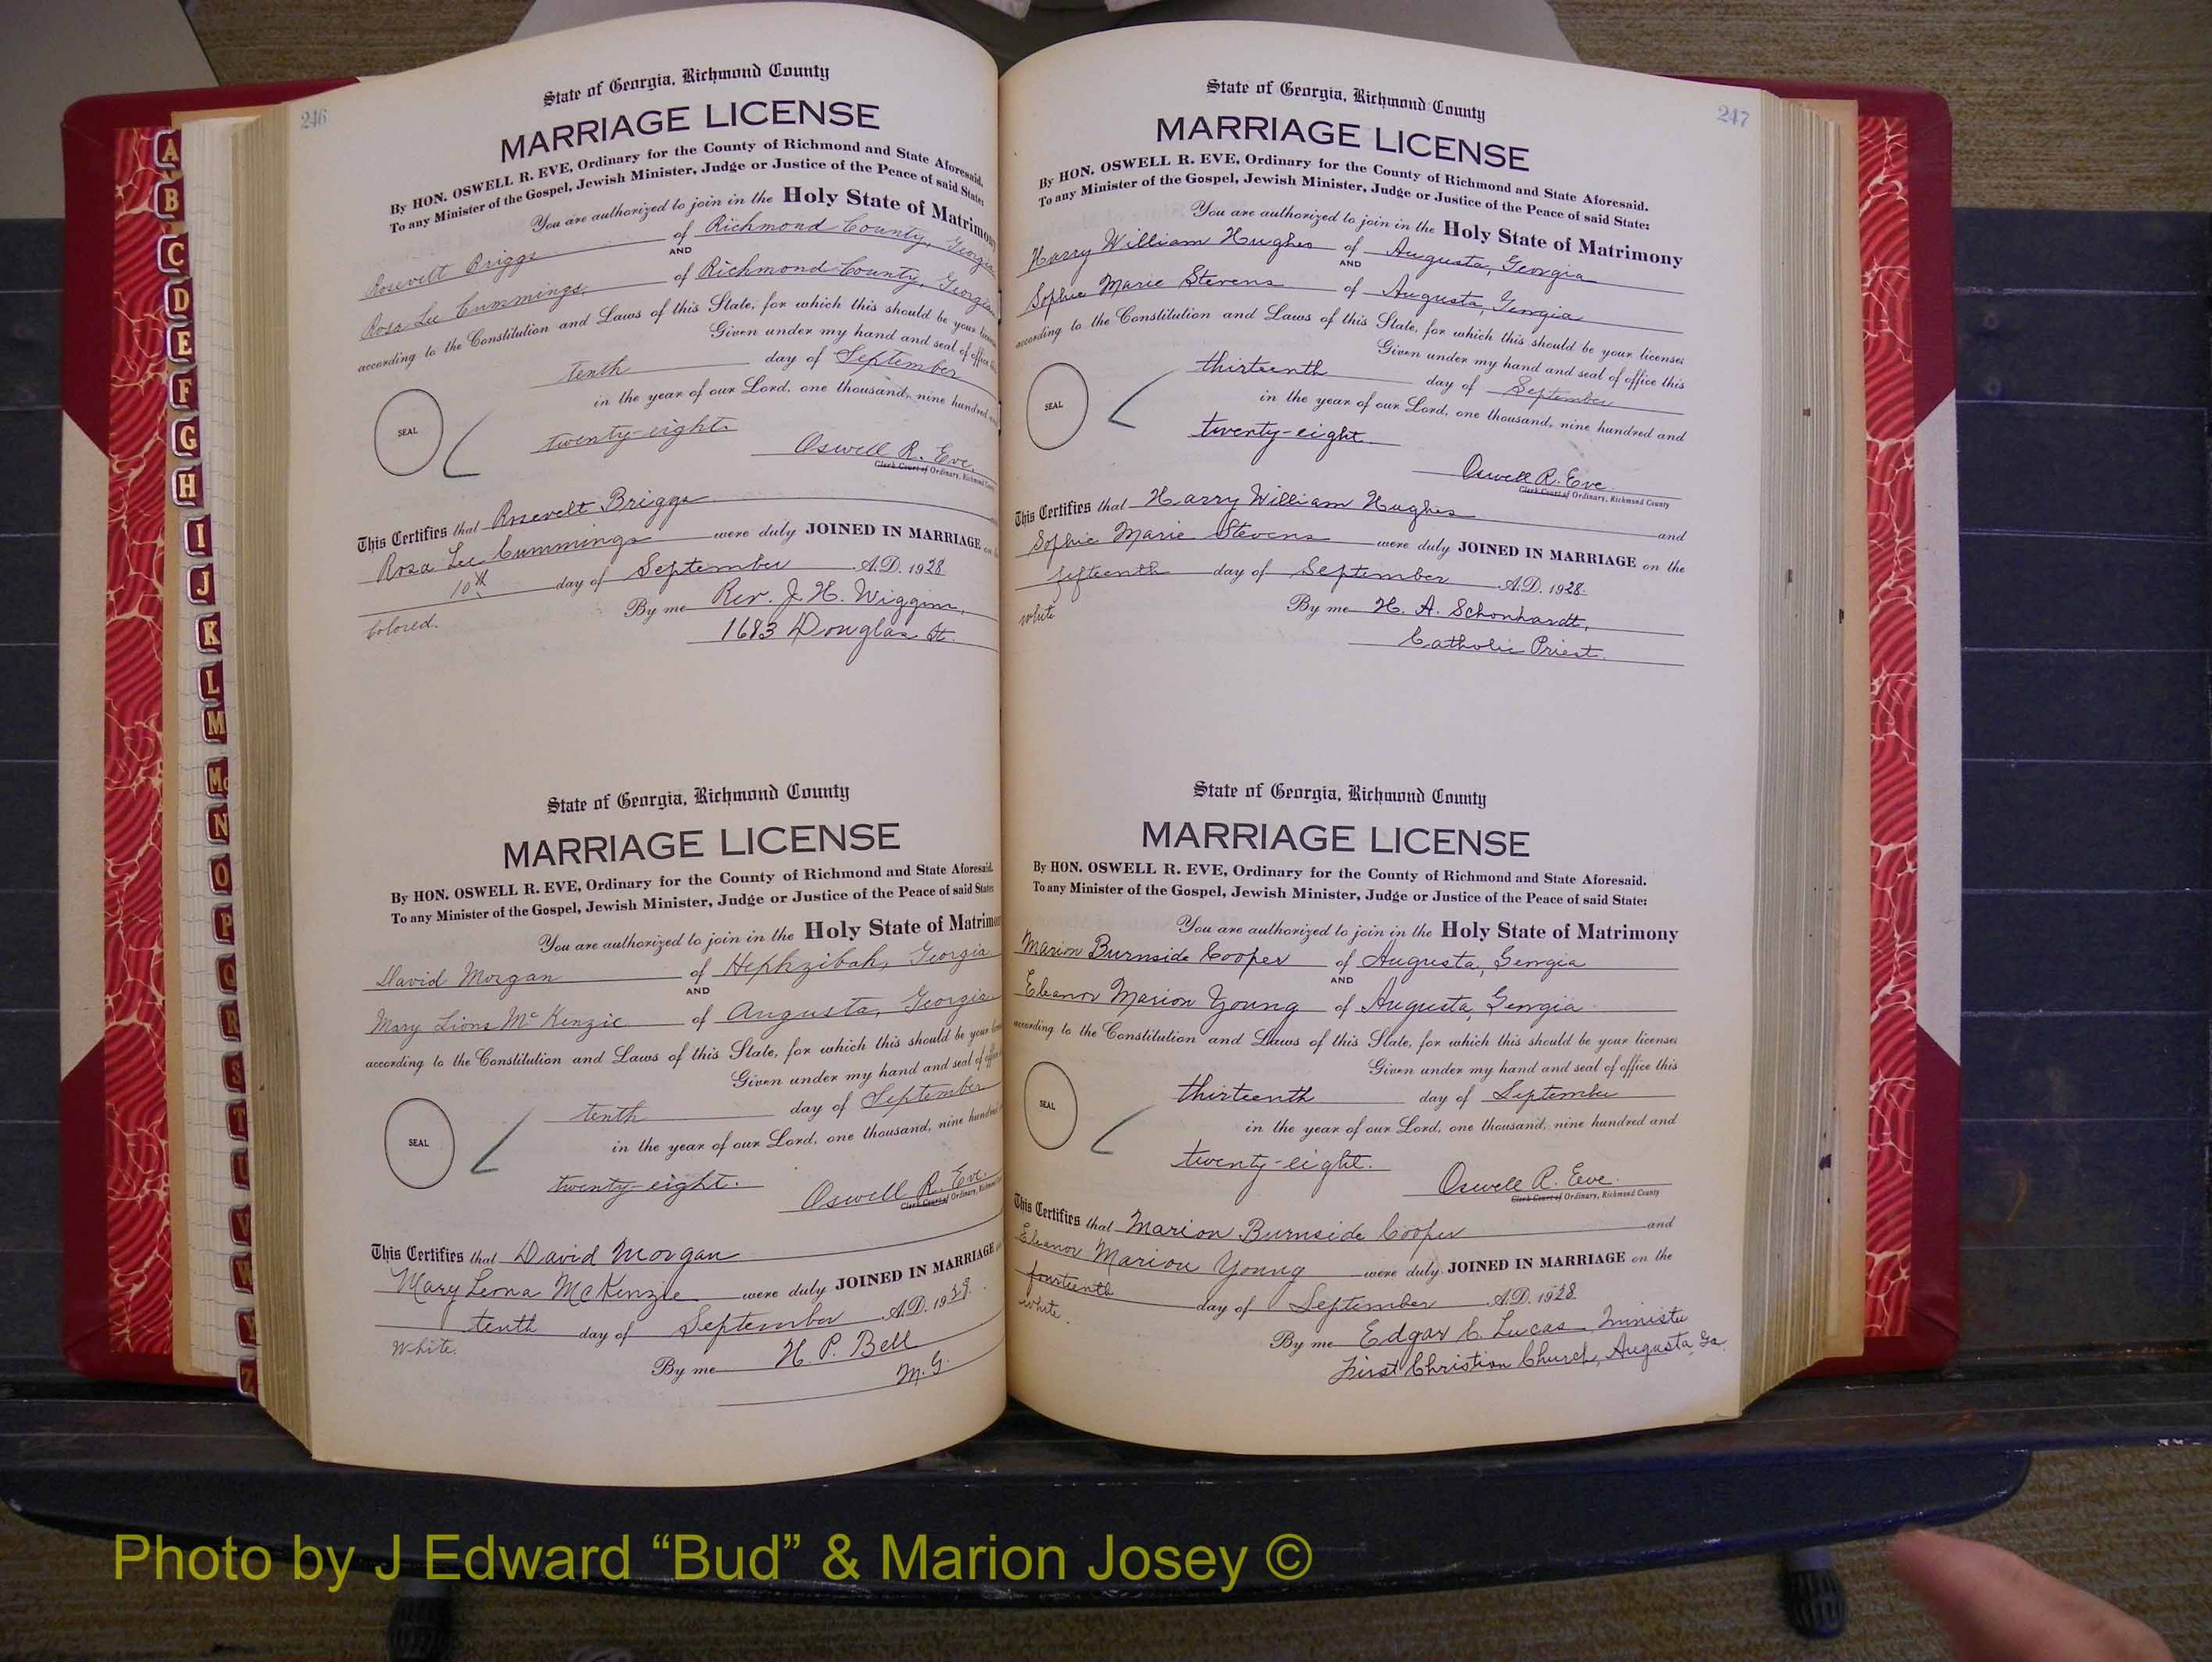 246
State of Georgia, Richmond County
MARRIAGE LICENSE
By HON. OSWELL R. EVE, Ordinary for the County of Richmond and State Aforesaid.
To any Minister of the Gospel, Jewish Minister, Judge or Justice of the Peace of said State:
You are authorized to join in the Holy State of Matrimony
Rosevelt Briggs of Richmond County, Georgia
AND
Rosa Lee Cummings, of Richmond County, Georgia
according to the Constitution and Laws of this State, for which this should be your license
Given under my hand and seal of office
tenth day of September
in the year of our Lord, one thousand, nine hundred
SEAL
twenty-eight.
Oswell R. Eve.
Clerk Court of Ordinary, Richmond County
This Certifies that Rosevelt Briggs
Rosa Lee Cummings were duly JOINED IN MARRIAGE on
10th day of September A.D. 1928
Colored.
By me Rev. J. H. Wiggins,
1683 Douglas St.
State of Georgia, Richmond County
MARRIAGE LICENSE
By HON. OSWELL R. EVE, Ordinary for the County of Richmond and State Aforesaid.
To any Minister of the Gospel, Jewish Minister, Judge or Justice of the Peace of said State:
You are authorized to join in the Holy State of Matrimony
David Morgan of Hephzibah, Georgia
AND
Mary Liona McKenzie of Augusta, Georgia
according to the Constitution and Laws of this State, for which this should be your
Given under my hand and seal of office
tenth day of September
in the year of our Lord, one thousand, nine hundred
SEAL
twenty-eight.
Oswell R. Eve.
Clerk Court of Ordinary, Richmond
This Certifies that David Morgan
Mary Leona McKenzie were duly JOINED IN MARRIAGE
tenth day of September A.D. 19
White.
By me H. P. Bell
M.G.
247
State of Georgia, Richmond County
MARRIAGE LICENSE
By HON. OSWELL R. EVE, Ordinary for the County of Richmond and State Aforesaid.
To any Minister of the Gospel, Jewish Minister, Judge or Justice of the Peace of said State:
You are authorized to join in the Holy State of Matrimony
Harry William Hughes of Augusta, Georgia
AND
Sophie Marie Stevens of Augusta, Georgia
according to the Constitution and Laws of this State, for which this should be your license:
Given under my hand and seal of office this
thirteenth day of September
in the year of our Lord, one thousand, nine hundred and
SEAL
twenty-eight
Oswell R. Eve
Clerk Court of Ordinary, Richmond County
This Certifies that Harry William Hughes and
Sophie Marie Stevens were duly JOINED IN MARRIAGE on the
fifteenth day of September A.D. 1928.
white
By me H. A. Schonhardt,
Catholic Priest.
State of Georgia, Richmond County
MARRIAGE LICENSE
By HON. OSWELL R. EVE, Ordinary for the County of Richmond and State Aforesaid.
To any Minister of the Gospel, Jewish Minister, Judge or Justice of the Peace of said State:
You are authorized to join in the Holy State of Matrimony
Marion Burnside Cooper of Augusta, Georgia
AND
Eleanor Marion Young of Augusta, Georgia
according to the Constitution and Laws of this State, for which this should be your license:
Given under my hand and seal of office this
thirteenth day of September
in the year of our Lord, one thousand, nine hundred and
SEAL
twenty-eight.
Oswell R. Eve.
Clerk Court of Ordinary, Richmond County
This Certifies that Marion Burnside Cooper and
Eleanor Marion Young were duly JOINED IN MARRIAGE on the
fourteenth day of September A.D. 1928
white.
By me Edgar C. Lucas Minister
First Christian Church, Augusta, Ga.
A
B
C
D
E
F
G
H
I
J
K
L
M
Mc
N
O
P
Q
R
S
T
U
V
W
Y
Z
Photo by J Edward “Bud” & Marion Josey ©